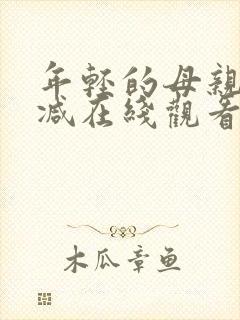 年轻的母親
减在綫觀看
木瓜章鱼